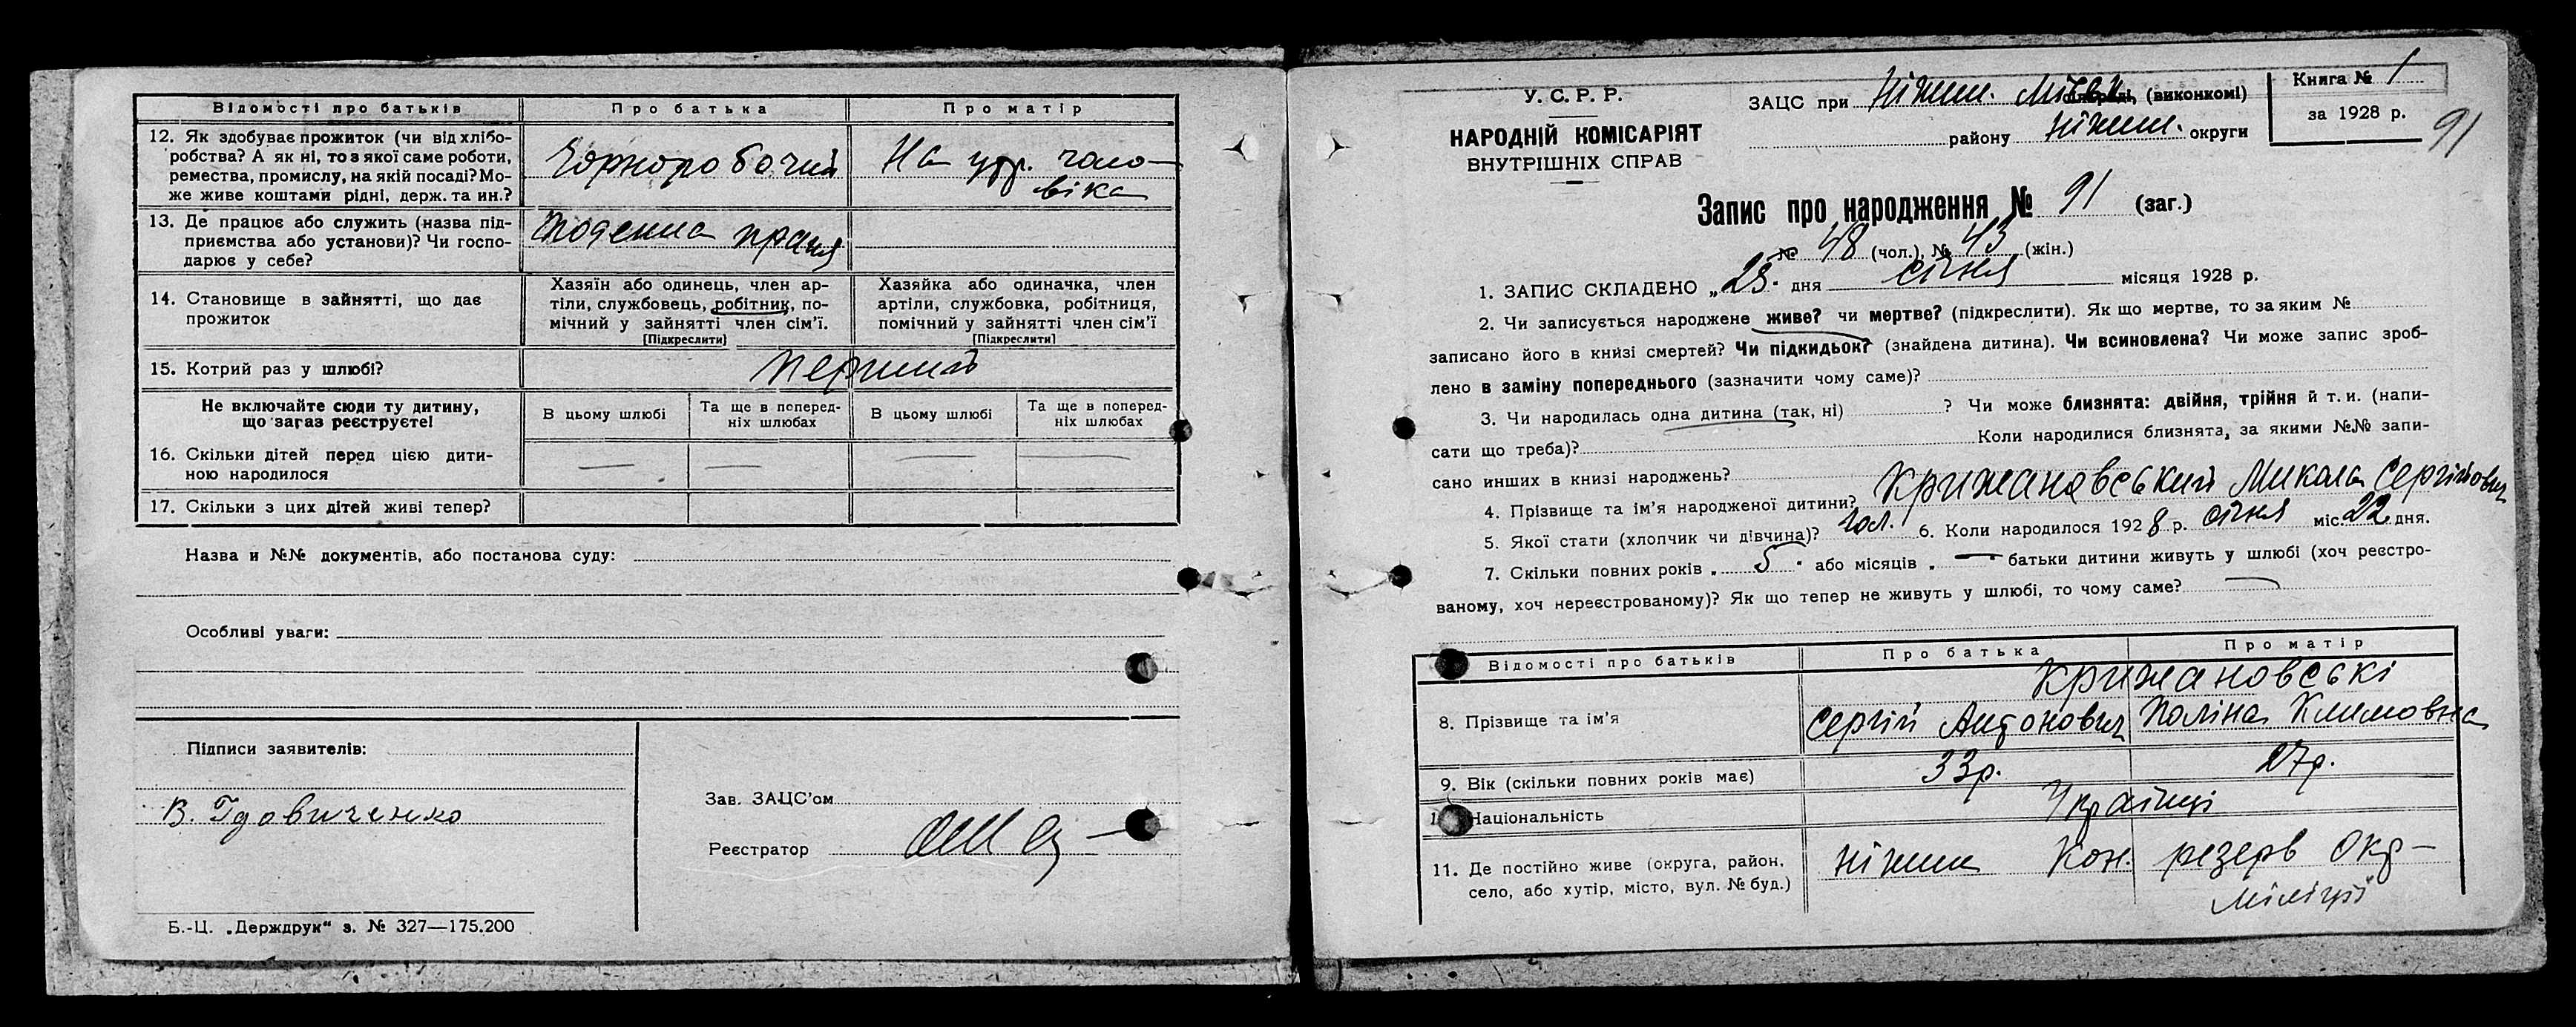 Відомості про батьків Про батька Про матір
12. Як здобуває прожиток (чи від хлібо-
робства? А як ні, то з якої саме роботи,
ремества, промислу, на якій посаді? Мо-
же живе коштами рідні, держ. та ин.?
Чорноробочий
На утр. чоло-
віка
13. Де працює або служить (назва під-
приємства або установи)? Чи госпо-
дарює у себе?
Поденна праця
14. Становище в зайнятті, що дає
прожиток
Хазяїн або одинець, член ар-
тіли, службовець, робітник, по-
мічний у зайнятті член сім'ї.
[Підкреслити]
Хазяйка або одиначка, член
артіли, службовка, робітниця,
помічний у зайнятті член сім'ї
[Підкреслити]
15. Котрий раз у шлюбі? перший
Не включайте сюди ту дитину,
що загаз реєструєте!
В цьому шлюбі
Та ще в поперед-
ніх шлюбах
В цьому шлюбі
Та ще в поперед-
ніх шлюбах
16. Скільки дітей перед цією дити-
ною народилося
— — — —
17. Скільки з цих дітей живі тепер?
Назва и №№ документів, або постанова суду:
Особливі уваги:
Підписи заявителів:
Зав. ЗАЦС'ом
Реєстратор
Б.-Ц. „Держдрук“ з. № 327—175.200
У. С. Р. Р.
НАРОДНІЙ КОМІСАРІЯТ
ВНУТРІШНІХ СПРАВ
ЗАЦС при Ніжин. (виконкомі)
району Ніжин. округи
Книга № 1
за 1928 р.
91
Запис про народження № 91 (заг.)
№ 48 (чол.), № 43 (жін.)
1. ЗАПИС СКЛАДЕНО „ дня січня місяця 1928 р.
2. Чи записується народжене живе? чи мертве? (підкреслити). Як що мертве, то за яким №
записано його в книзі смертей? Чи підкидьок? (знайдена дитина). Чи всиновлена? Чи може запис зроб-
лено в заміну попереднього (зазначити чому саме)?
3. Чи народилась одна дитина (так, ні) ? Чи може близнята: двійня, трійня й т. и. (напи-
сати що треба)? Коли народилися близнята, за якими №№ запи-
сано инших в книзі народжень?
4. Прізвище та ім'я народженої дитини? Крижановський Микола Сергійович
5. Якої стати (хлопчик чи дівчина)? чол. 6. Коли народилося 1928 р. січня міс. 22 дня.
7. Скільки повних років „ 5 “ або місяців „ — батьки дитини живуть у шлюбі (хоч реєстро-
ваному, хоч нереєстрованому)? Як що тепер не живуть у шлюбі, то чому саме? —
Відомості про батьків Про батька Про матір
Крижановські
8. Прізвище та ім'я Сергій Антонович Поліна Климовна
9. Вік (скільки повних років має) 33р. 27р.
10. Національність Українці
11. Де постійно живе (округа, район,
село, або хутір, місто, вул. № буд.)
Ніжин Кон. резерв Окр-
міліції